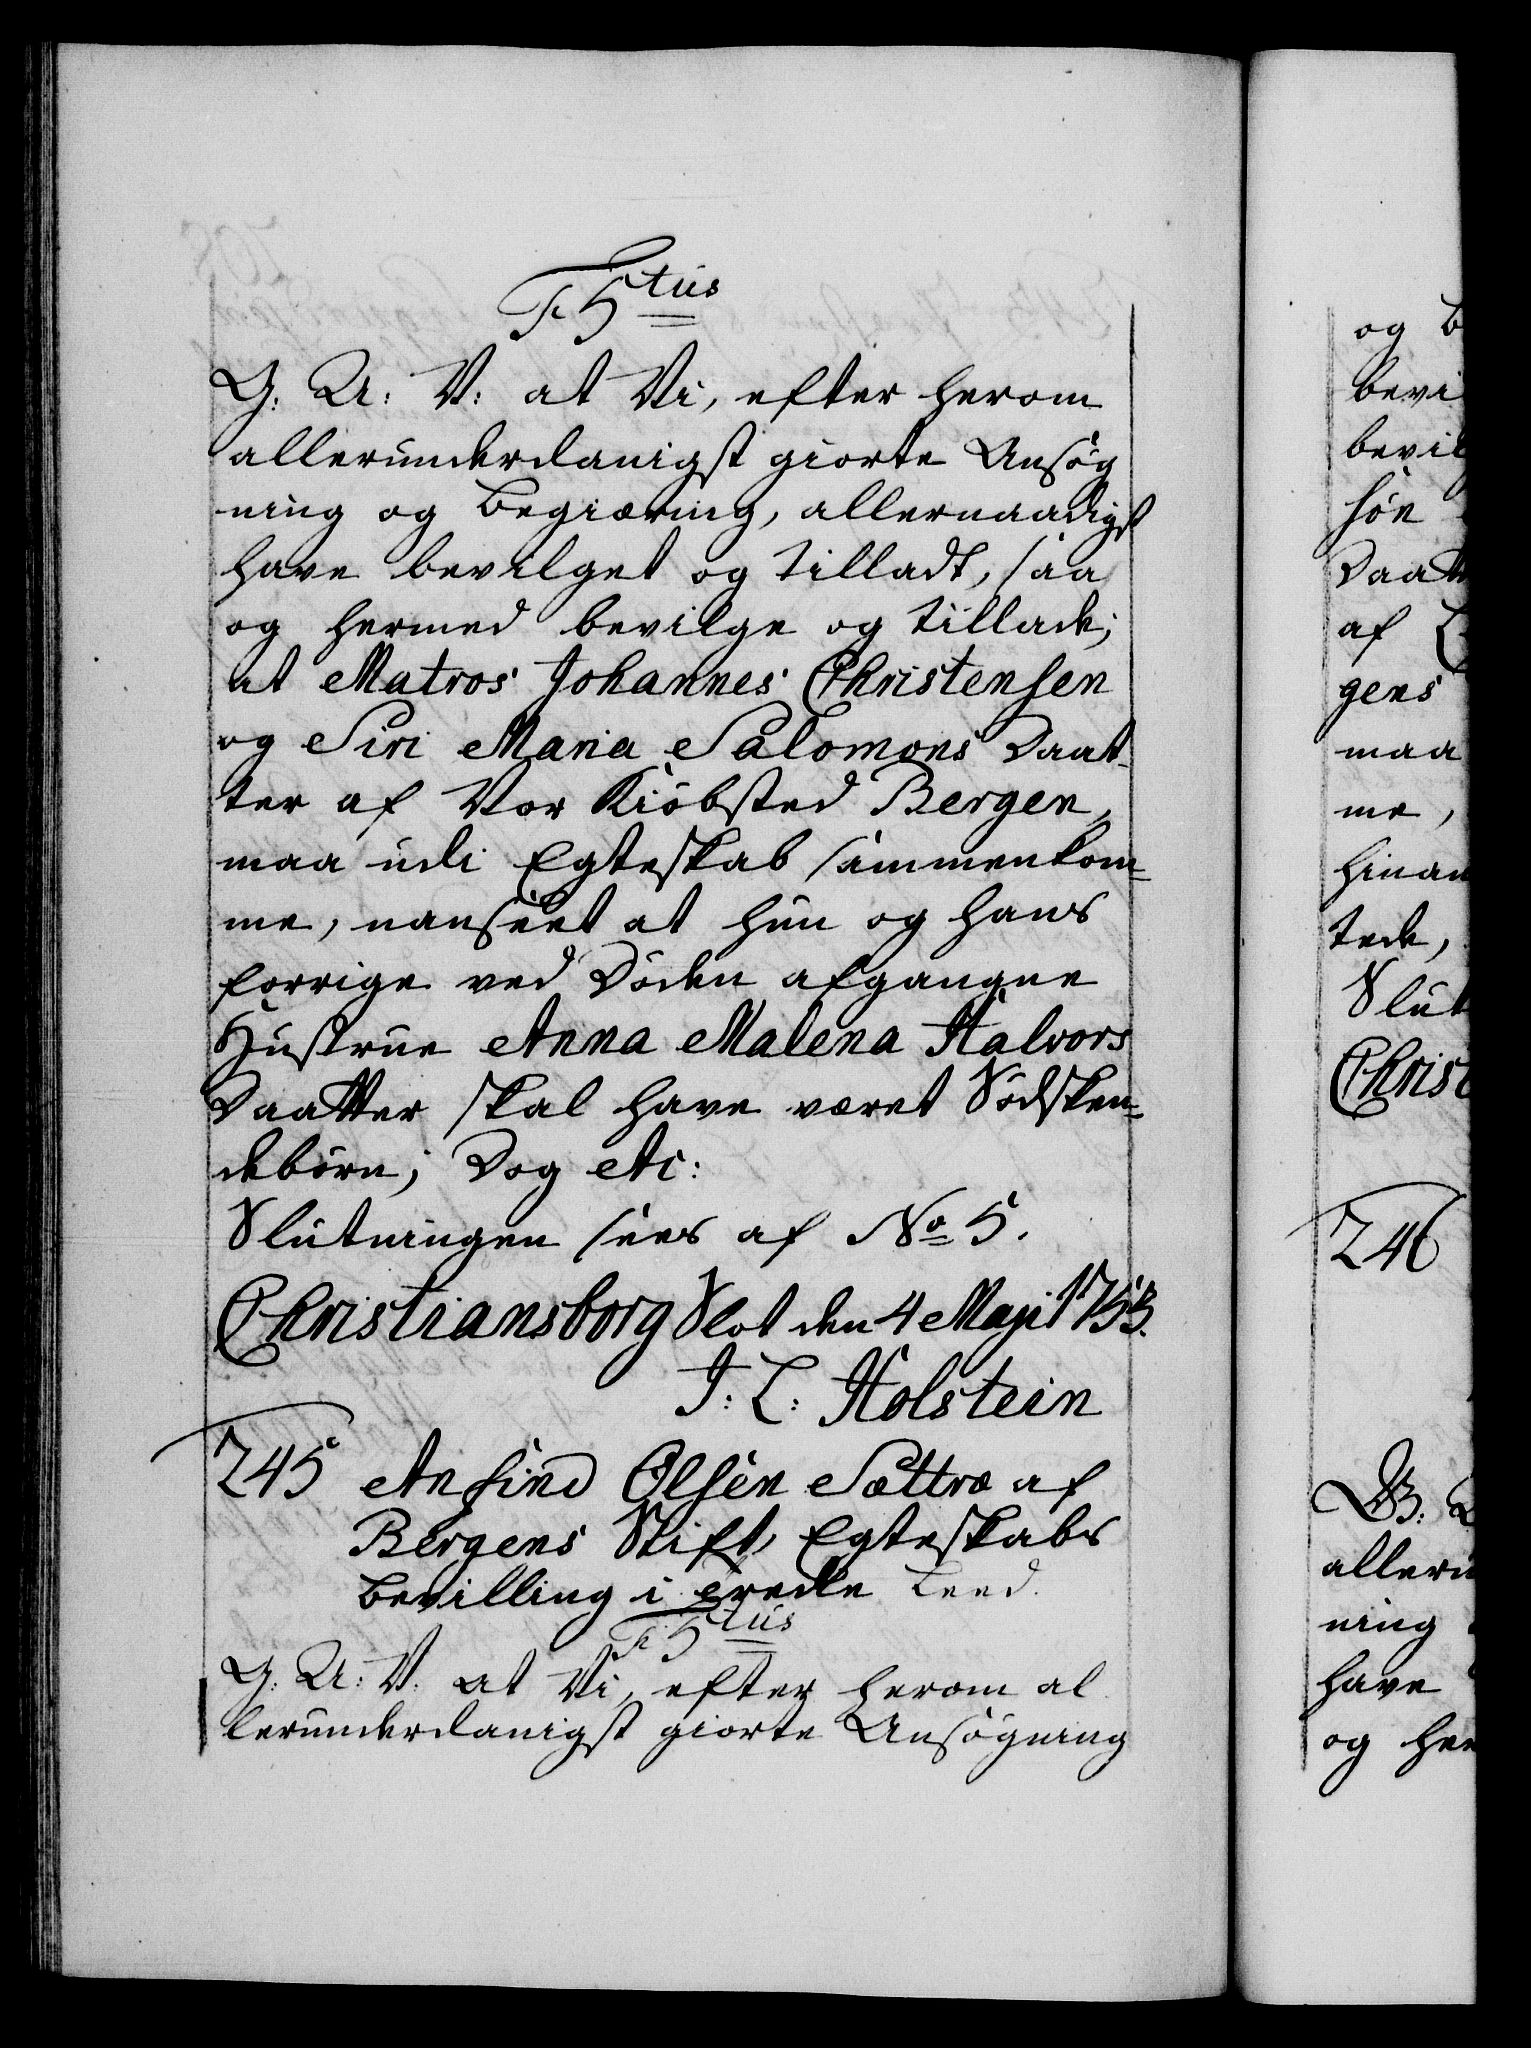 F 5tus
G: A: V: at Vi, efter herom
allerunderdanigst giorte Ansøg
ning og Begiæring, allernaadigst
have bevilget og tilladt, saa
og hermed bevilge og tillade,
at Matros Johannes Christensen
og Siri Maria Salomons Daat-
ter af Vor Kiøbsted Bergen,
maa udi Egteskab sammenkom-
me, uanseet at hun og hans
forrige ved Døden afgangne
Hustrue Anna Malena Halvors
Daatter skal have været Sødsken-
debørn; Dog etc:
Slutningen sees af No 5.
Christiansborg Slot den 4 Maji 1753.
J: L: Holstein
245 Anfind Olsen Sættræ af
Bergens Stift, Egteskabs
Bevilling i tredie Leed.
F 5tus
G: A: V: at Vi, efter herom al
lerunderdanigst giorte Ansøgning
og B
bevi
bevil
søn
Daatt
af
gens
maa
me,
hinan
tede,
Slut
Christ
246
G:
alleru
ning
have
og her